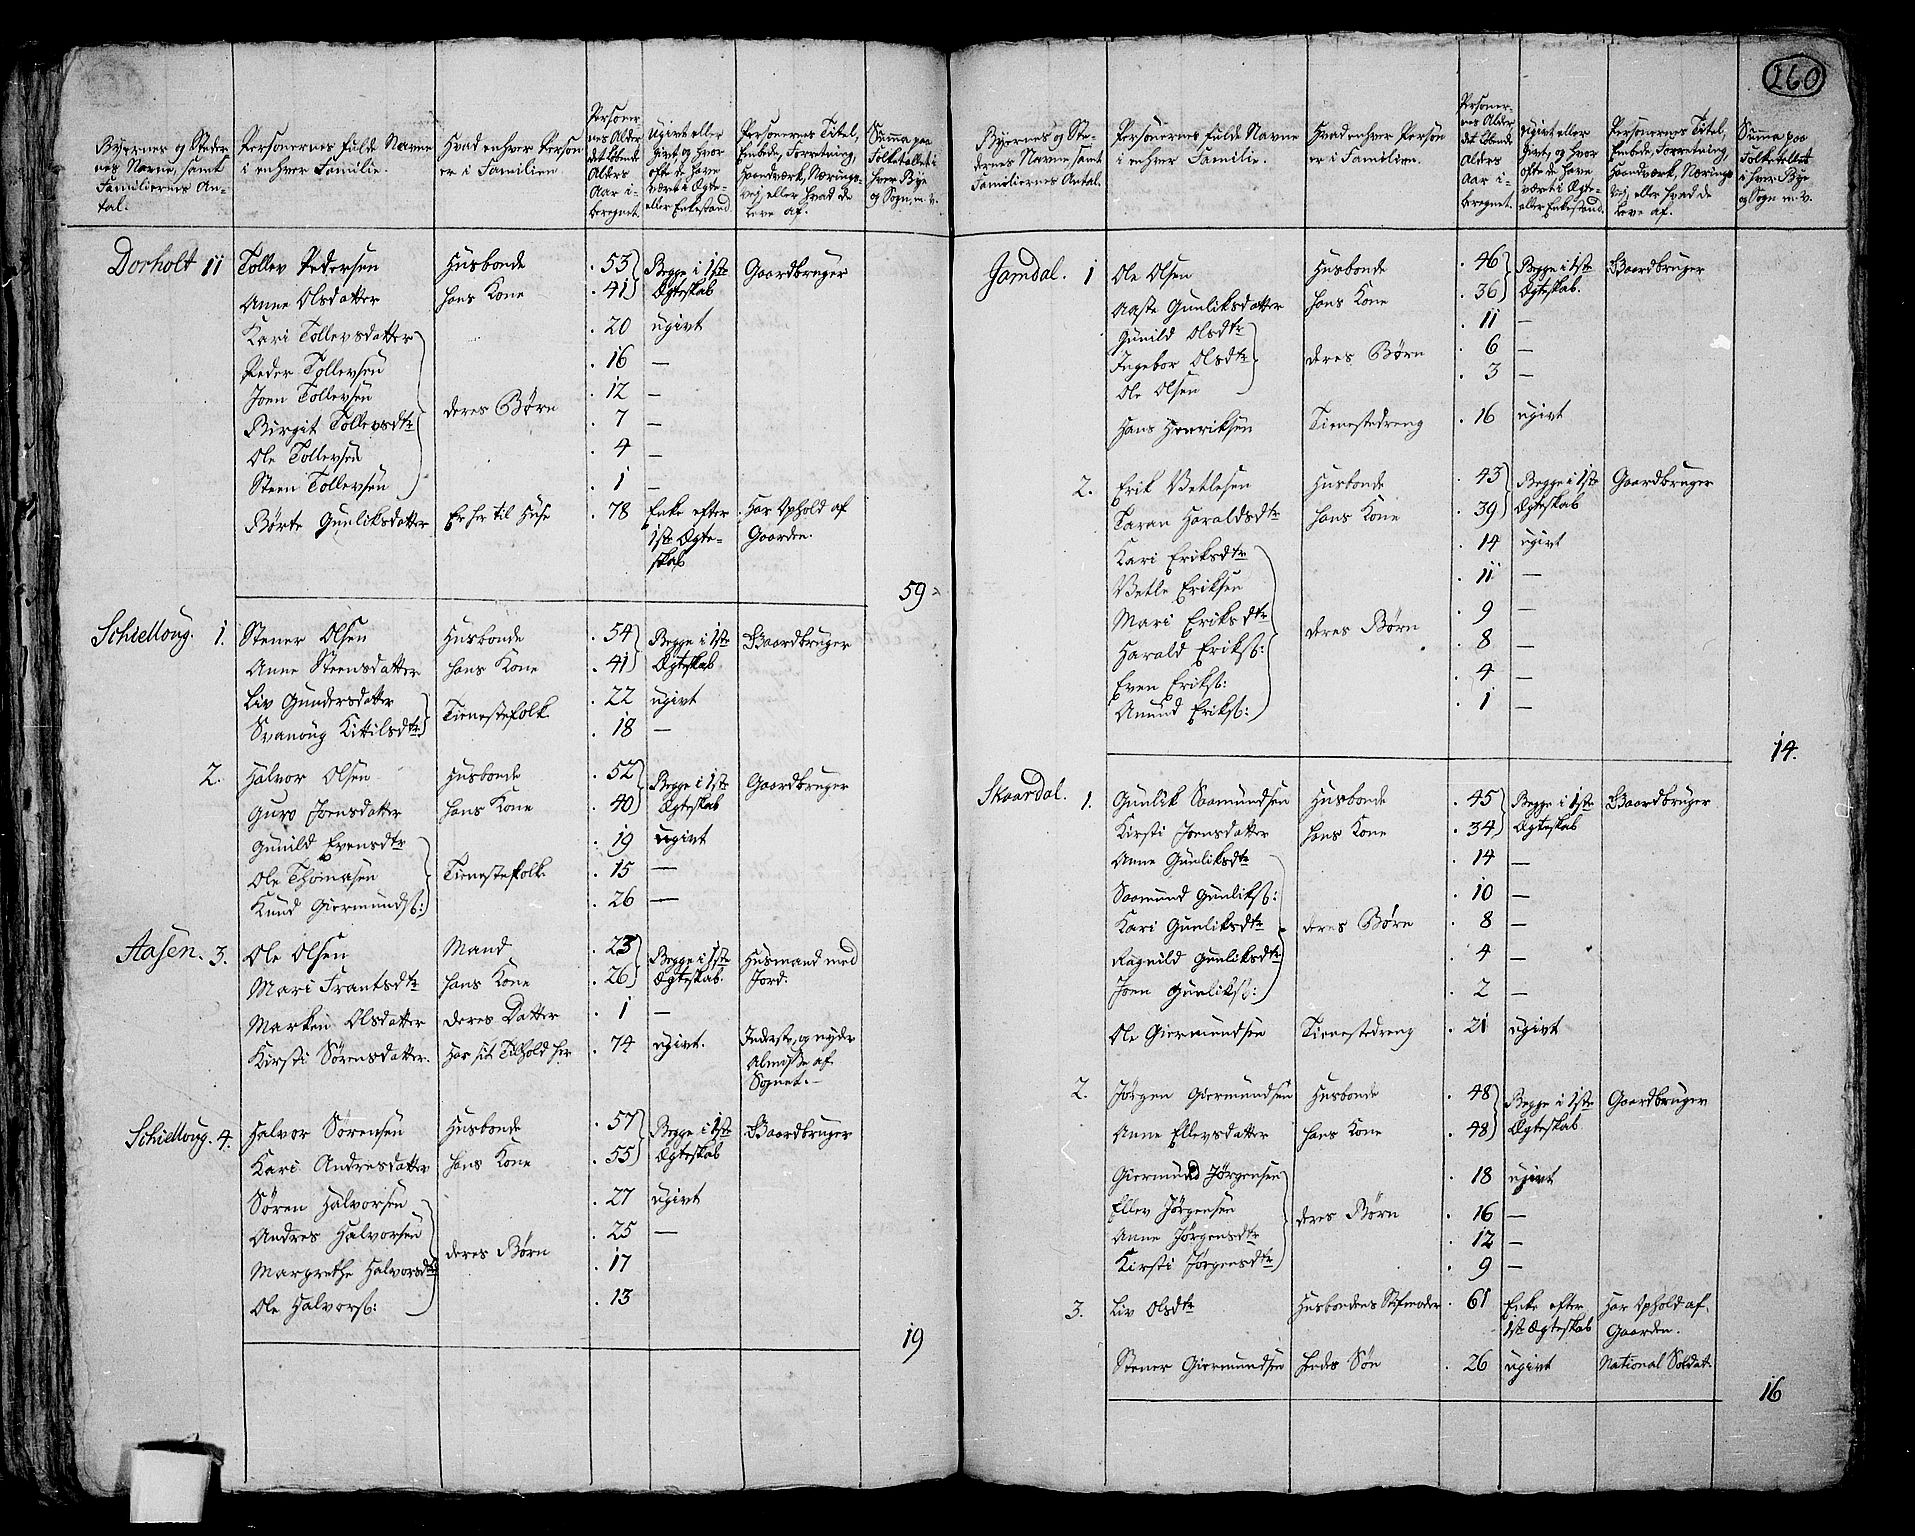 260
Byernes og Steder-
nes Navne, samt
Familiernes An-
tal.
Personernes fulde Navne
i enhver Familie.
Hvad enhver Person
er i Familien.
Personer-
nes Alder
det löbende
Alders
Aar i-
beregnet.
Ugivt eller
Givt, og hvor
ofte de have
vært i Ægte-
eller Enkestand.
Personernes Titel,
Embede, Forretning,
Haandværk, Nærings-
vej, eller hvad de
leve af.
Summa paa
Folketallet i
hver Bye
og Sogn, m. v.
Dorholt 11 Tollev Pedersen Husbonde 53 Begge i 1ste Gaardbruger
Anne Olsdatter hans Kone 41 Ægteskab
Kari Tollevsdatter 20 ugivt
Peder Tollevsen 16 —
Joen Tollevsen 12 —
Birgit Tollevsdtr deres Børn 7 —
Ole Tollevsen 4 —
Steen Tollevsen 1 —
Børte Gunliksdatter Er her til Huse 78 Enke efter Har Ophold af
1ste Ægte- Gaarden.
skab
59
Schielloug. 1. Stener Olsen Husbonde 54 Begge i 1ste Gaardbruger
Anne Steensdatter hans Kone 41 Ægteskab
Liv Gundersdatter 22 ugivt
Svanoug Kittilsdtr Tienestefolk 18 —
2. Halvor Olsen Husbonde 52 Begge i 1ste Gaardbruger
Guro Joensdatter hans Kone 40 Ægteskab
Gunild Evensdtr 19 ugivt
Ole Thomasen Tienestefolk 15 —
Knud Giermunds: 26 —
Aasen. 3. Ole Olsen Mand 23 Begge i 1ste Husmand med
Mari Frantsdtr hans Kone 26 Ægteskab. Jord.
Marken Olsdatter deres Datter 1 —
Kirsti Sørensdatter. Har sit Tilhold her 74 ugivt. Inderste, og nyder
Almisse af
Sognet.
Schielloug. 4. Halvor Sørensen Husbonde 57 Begge i 1ste Gaardbruger
Kari Andresdatter hans Kone 55 Ægteskab
Søren Halvorsen 27 ugivt
Andres Halvorsen 25 —
Margrethe Halvorsdtr deres Børn 17
Ole Halvors: 13
19
Byernes og Ste-
dernes Navne samt
Familiernes Antal.
Personernes fulde Navne
i enhver Familie.
Hvad enhver Person
er i Familien.
Personer-
nes Alder
det löbende
Alders
Aar i-
beregnet.
Ugivt eller
Givt, og hvor
ofte de have
vært i Ægte-
eller Enkestand.
Personernes Titel,
Embede, Forretning,
Haandværk, Nærings-
vej, eller hvad de
leve af.
Summa paa
Folketallet
i hver Bye
og Sogn m. v.
Jamdal. 1 Ole Olsen Husbonde 46 Begge i 1ste Gaardbruger
Aaste Gunliksdatter hans Kone 36 Ægteskab.
Gunild Olsdtr 11 —
Ingebor Olsdtr deres Børn 6 —
Ole Olsen 3 —
Hans Henriksen Tienestedreng 16 ugivt
2. Erik Vetlesen Husbonde 43 Begge i 1ste Gaardbruger
Taran Haraldsdtr hans Kone 39 Ægteskab
Kari Eriksdtr 14 ugivt
Vetle Eriksen 11 —
Mari Eriksdtr deres Børn 9 —
Harald Eriks: 8 —
Even Eriks: 4 —
Anund Eriks: 1 —
14.
Skaardal. 1. Gunlik Saamundsen Husbonde 45 Begge i 1ste Gaardbruger
Kirsti Joensdatter hans Kone 34 Ægteskab
Anne Gunliksdtr 14 —
Saamund Gunliks: 10 —
Kari Gunliksdtr deres Børn 8 —
Ragnild Gunliksdtr 4 —
Joen Gunliks: 2 —
Ole Giermundsen Tienestedreng 21 ugivt
2. Jørgen Giermundsen Husbonde 48 Begge i 1ste Gaardbruger
Anne Ellevsdatter hans Kone 48 Ægteskab
Giermund Jørgensen 18 ugivt
Ellev Jørgensen deres Børn 16 —
Anne Jørgensdtr 12 —
Kirsti Jørgensdtr 9 —
3. Liv Olsdtr Husbondens Stifmoder 61 Enke efter Har Ophold af
1ste Ægteskab Gaarden.
Stener Giermundsen hendes Søn 26 ugivt National Soldat.
16